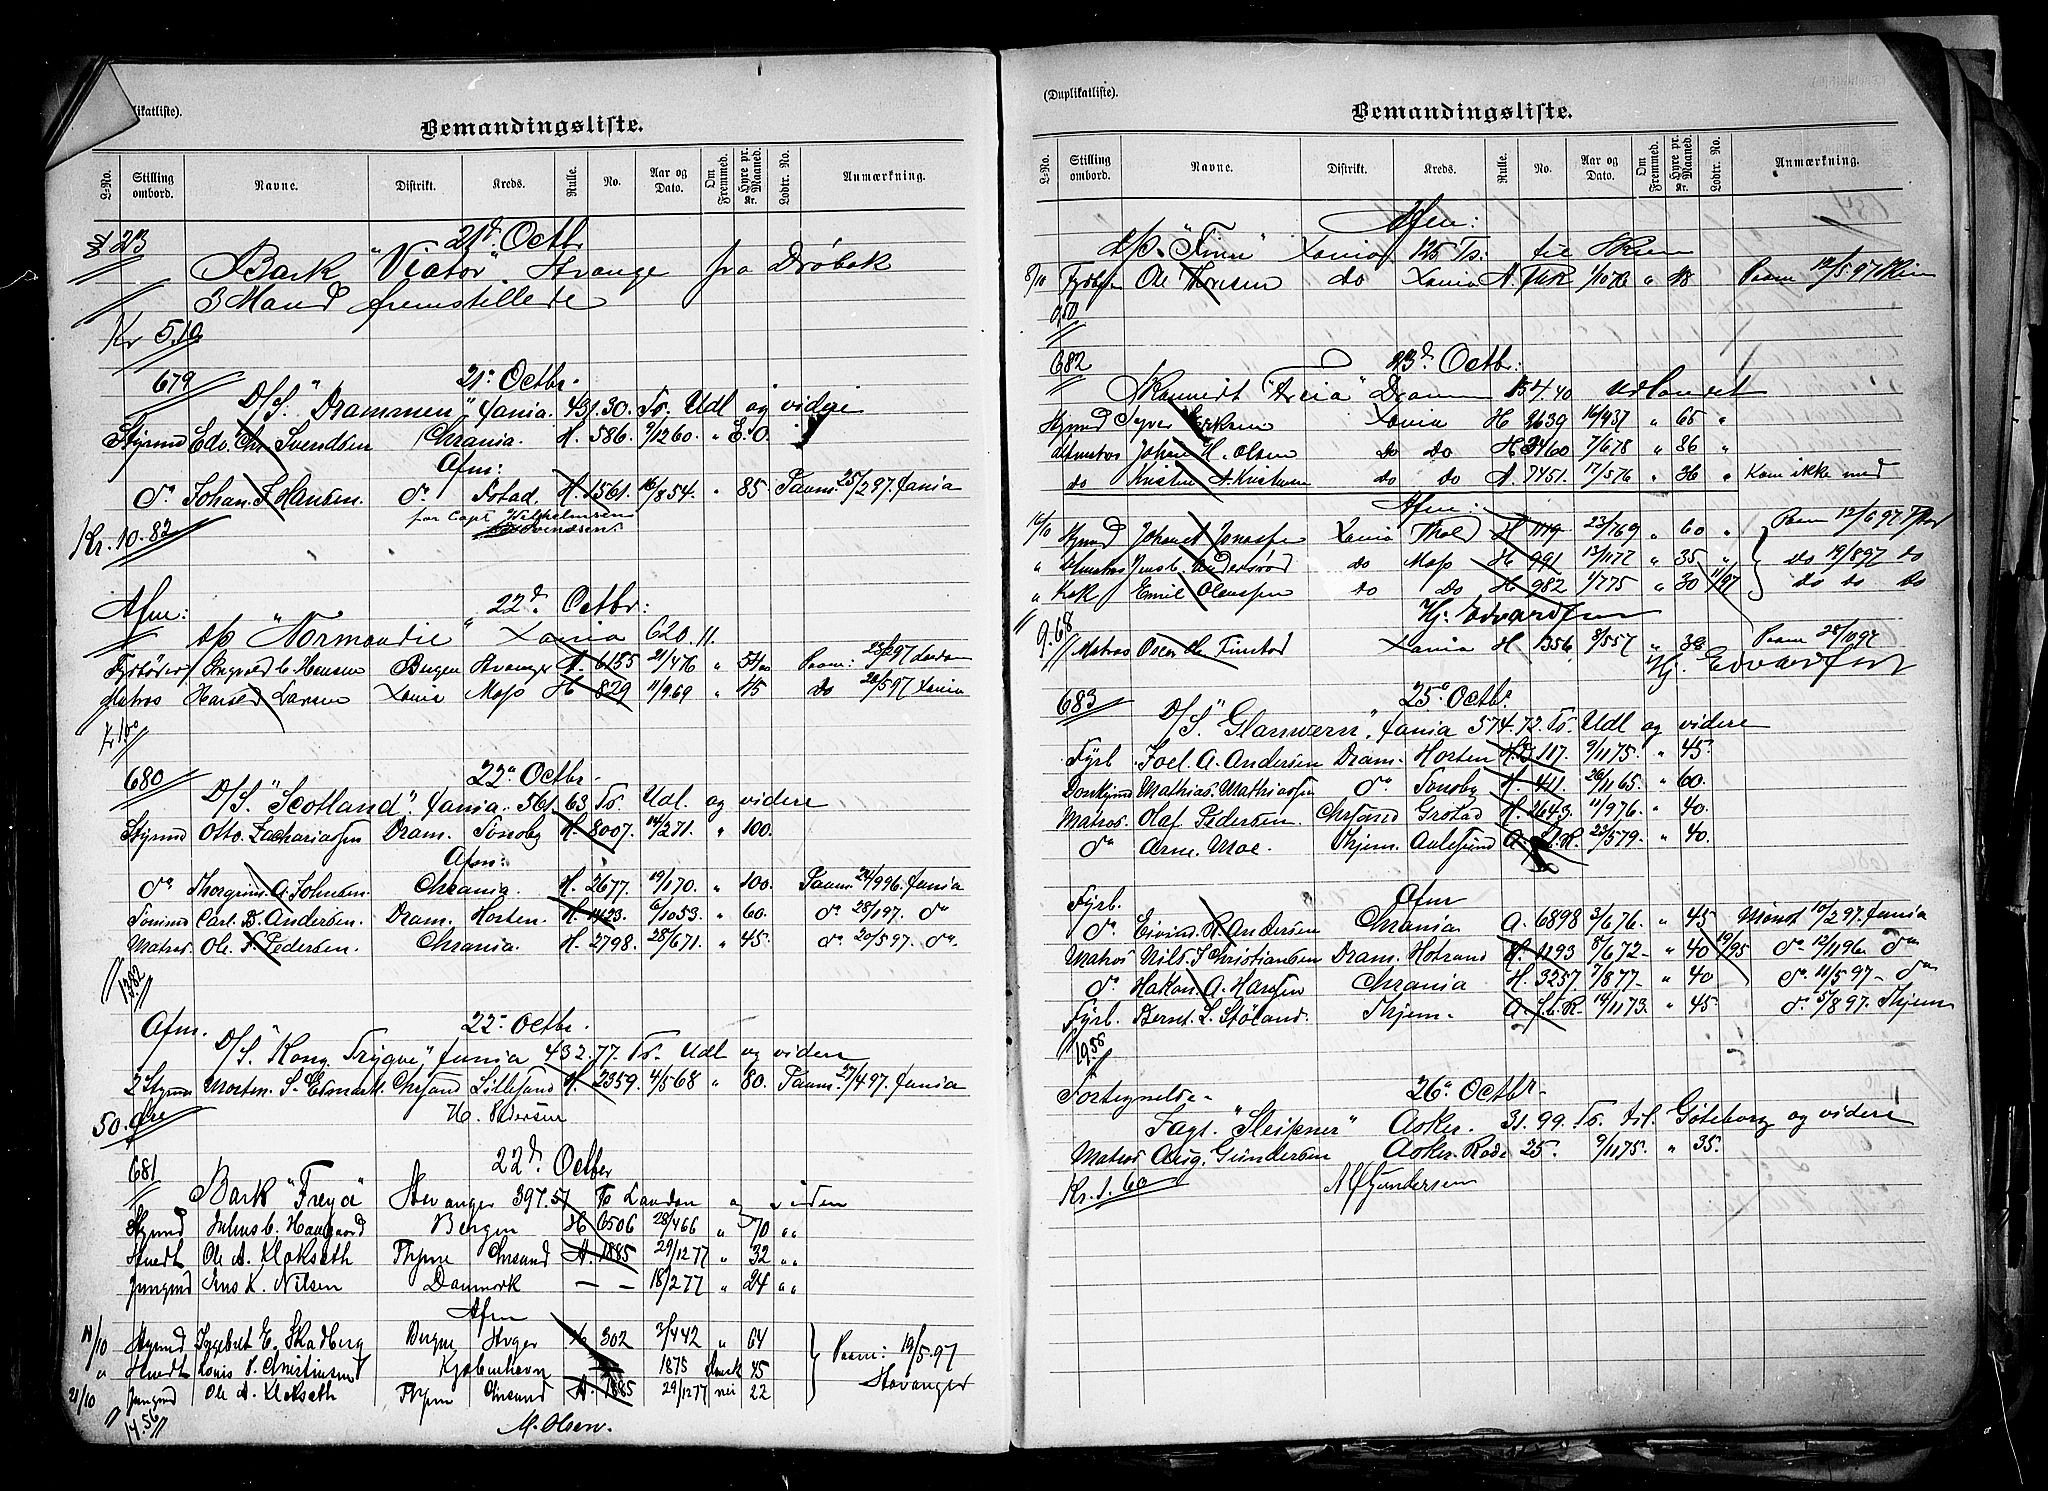 (Duplikatliste).
Bemandingsliste.
L-No. Stilling ombord. Navne. Distrikt. Kreds. Rulle. No. Aar og Dato. Om Fremmed. Hyre pr. Maaned. Kr. Lodtr. No. Anmærkning.
213 21d. Octbr
Bark "Viator" Stvange fra Drøbak
3 Mand fremstillede
Kr 5.10
679 21. Octbr.
D/S. "Drammen" Xania. 431.30. Ts. Udl og vidre
Styrmd Edv. Chr. Svendsen Chrania. H. 586. 9/12 60. " E. O.
Afm:
do Johan. F. Hansen. do Fstad. H. 1561. 16/8 54. " 85 Paam. 25/2 97. Xania
for Capt Wilhelmsen
Kr. 10.82
Afm: 22d. Octbr:
d/s "Normandie" Xania 620.11.
Fyrbøder Ingvald C. Hansen Bergen Stvanger A. 6155 21/4 76 " 54/00 Paam: 23/2 97
Matros Harald Larsen Xania Moss H 829 11/9 69 " 45 do 20/5 97 Xania
680 22. Octbr.
D/S. "Scotland". Xania. 561.63 Ts. Udl. og videre
Styrmd Otto. Zachariassen Dram. Tønsbg H. 8007. 14/2 71. " 100.
Afm:
do Thorgrim. A. Johnsen. Chrania. H. 2677. 19/1 70. " 100. Paam. 24/9 96. Xania
Tømmd Carl. B. Andersen. Dram. Horten. H. 1423. 6/10 53. " 60. do 28/1 97. do
Matros Ole. N. Pedersen. Chrania. H. 2798. 28/6 71. " 45. do 20/5 97. do.
1382
Afm. 22. Octbr.
D/S. "Kong Trygve" Xania 432.77. Ts. Udl og videre
2 Styrmd Morten. S. Edmark. Chrsand Lillesand H. 2359. 4/5 68 " 80. Paam. 27/4 97. Xania
50. Øre H. Pedersen
681 22d. Octber
Bark "Freya" Stavanger 397.51 Ts London og viden
Styrmd Julius C. Haugaard Bergen H 6506 28/4 66 " 70 "
Stuedt Ole A. Klokseth Thjem Chrsund A. 1885 29/12 77 " 32 "
Jungmd Jens K. Nilsen Danmark — — 18/2 77 " 24 "
Afm
19/10 Styrmd Ingebret E. Skadberg Bergen Stvger H 302 3/4 42 " 64
" Stuedt Louis P. Christiansen Kjøbenhavn 1875 Dansk 45 Paam: 19/5 97 Stavanger
21/10 Jungmd Ole A. Klokseth Thjem Chrsund A. 1885 29/12 77 nei 22
14.56 M. Olsen.
(Duplikatliste).
Bemandingsliste.
L-No. Stilling ombord. Navne. Distrikt. Kreds. Rulle. No. Aar og Dato. Om Fremmed. Hyre pr. Maaned. Kr. Lodtr. No. Anmærkning.
Afm:
d/s. "Finn" Xania 125 Ts. til Skien
8/10 Fyrbød Ole Thoresen do Xania A. 1/10 76 " 48 Paam 12/5 97 Skien
682 23d. Octbr:
Skonnert "Freia" Dram 154.40 Udlandet
Styrmd Syver Eriksen Xania H 2639 16/4 37 " 65 "
Matros Johan H. Olsen do do H 3460 7/6 78 " 36 "
do Kristen A. Kristensen do do A. 7451. 17/5 76 " 36 " Kom ikke med
Afm:
16/10 Styrmd Johannes Jonassen Xania H 1119 23/7 69 " 60 " Paam 12/6 97
" Matros Jens C. Andersrød do Moss H 991 13/11 77 " 35 " do 19/8 97 do
" Kok Emil Olaussen do do H 982 1/7 75 " 30 11/97 do do do
Hj. Edvardsen
9.68 Matros Oscar Finstad Xania H 1356 3/5 57 " 36 Paam 28/10 97
Hj. Edvardsen
683 25. Octbr.
D/S. "Glanwern". Xania 574.72. Ts. Udl og videre
Fyrb Joel. A. Andersen Dram. Horten H. 117. 9/11 75. " 45.
Donkymd Mathias. Mathiassen do Tønsbg H. 411. 26/11 65. " 60.
Matros. Olaf. Pedersen. Chrsand Grstad H. 2643. 11/9 76. " 40.
do Arne. Moe. Thjem. Aalesund A. S. C. R. 23/5 79. " 40.
Afm
Fyrb.
do Eivind. R. Andersen Chrania A. 6898 3/6 76. " 45 Mønst 10/2 97. Xania
Matros Nils. J. Christiansen Dram. Hstrand H. 1293 8/6 72 – " 40 19/95 do 12/1 96. do
do Hakon. A. Hansen Chrania H. 3257. 7/8 77 – " 40 do 11/5 97 – do
Fyrb. Bernt. L. Støland. Thjem. A. S. C. R. 14/11 73. " 45 do 5/8 97. Thjem
19.55
Fortegnelse. 26. Octbr.
Jagt. "Sleipner" Asker. 31.99. Ts. til. Göteborg og videre
Matros Aug. Gundersen Asker. Rode 25. 9/11 75. " 35.
Kr. 1.60 A. Gundersen